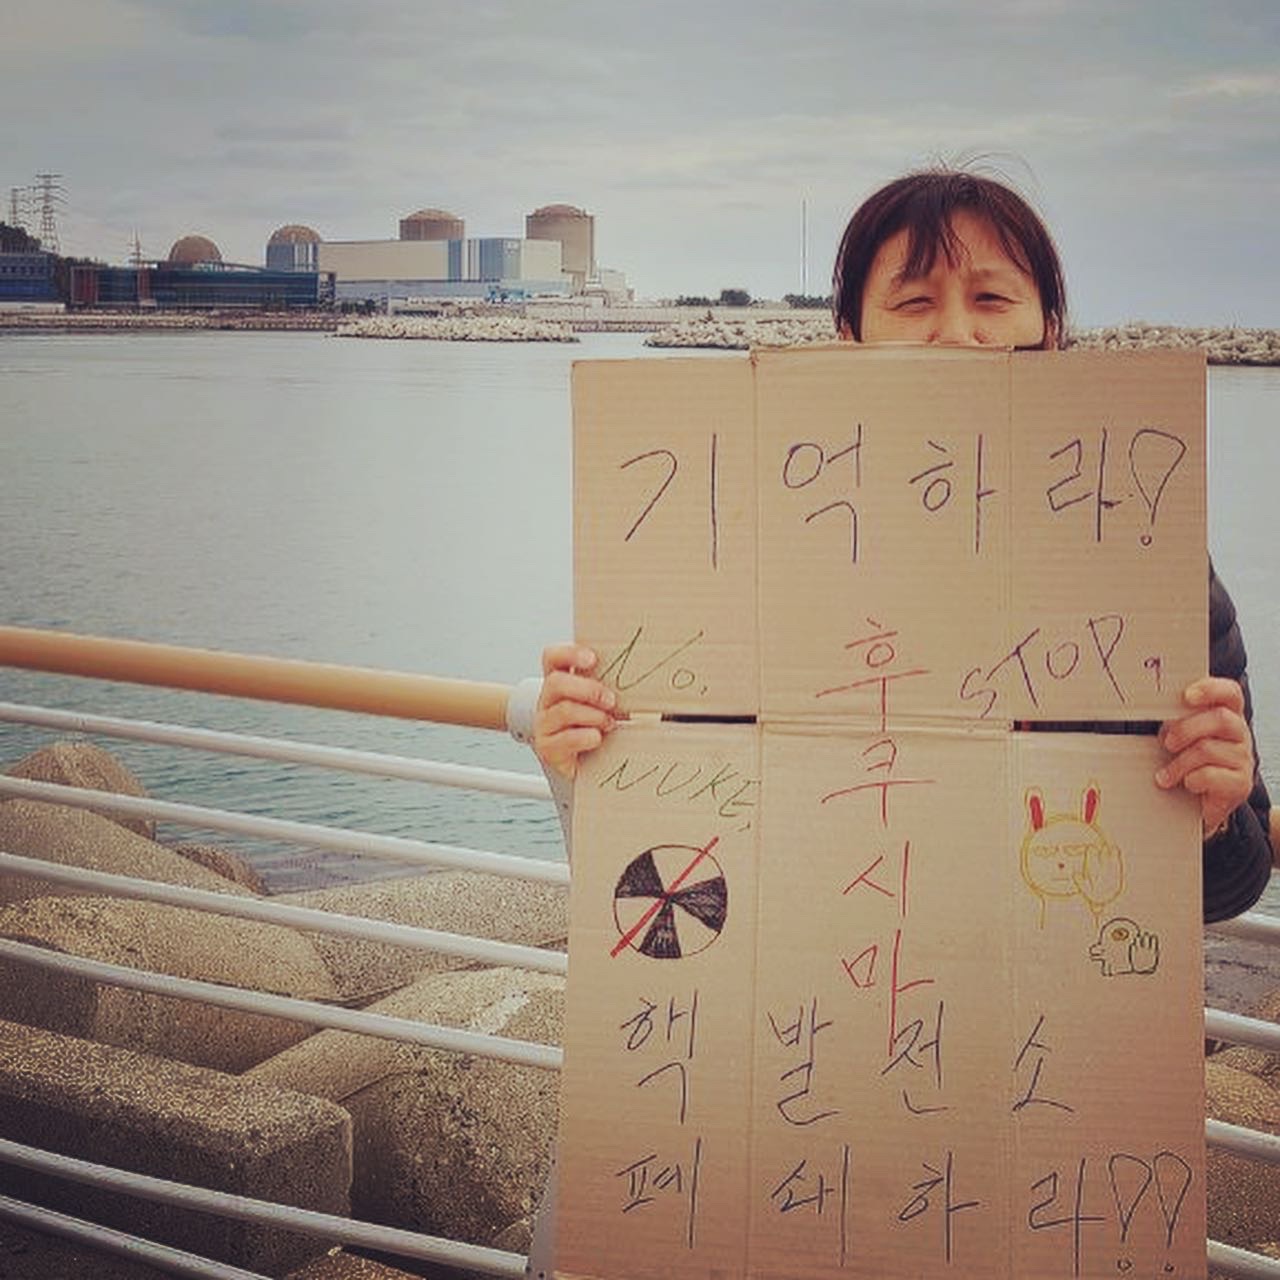 기억하라!
No,
NUKE,
후
쿠
시
마
STOP,
핵발전소
폐쇄하라!!